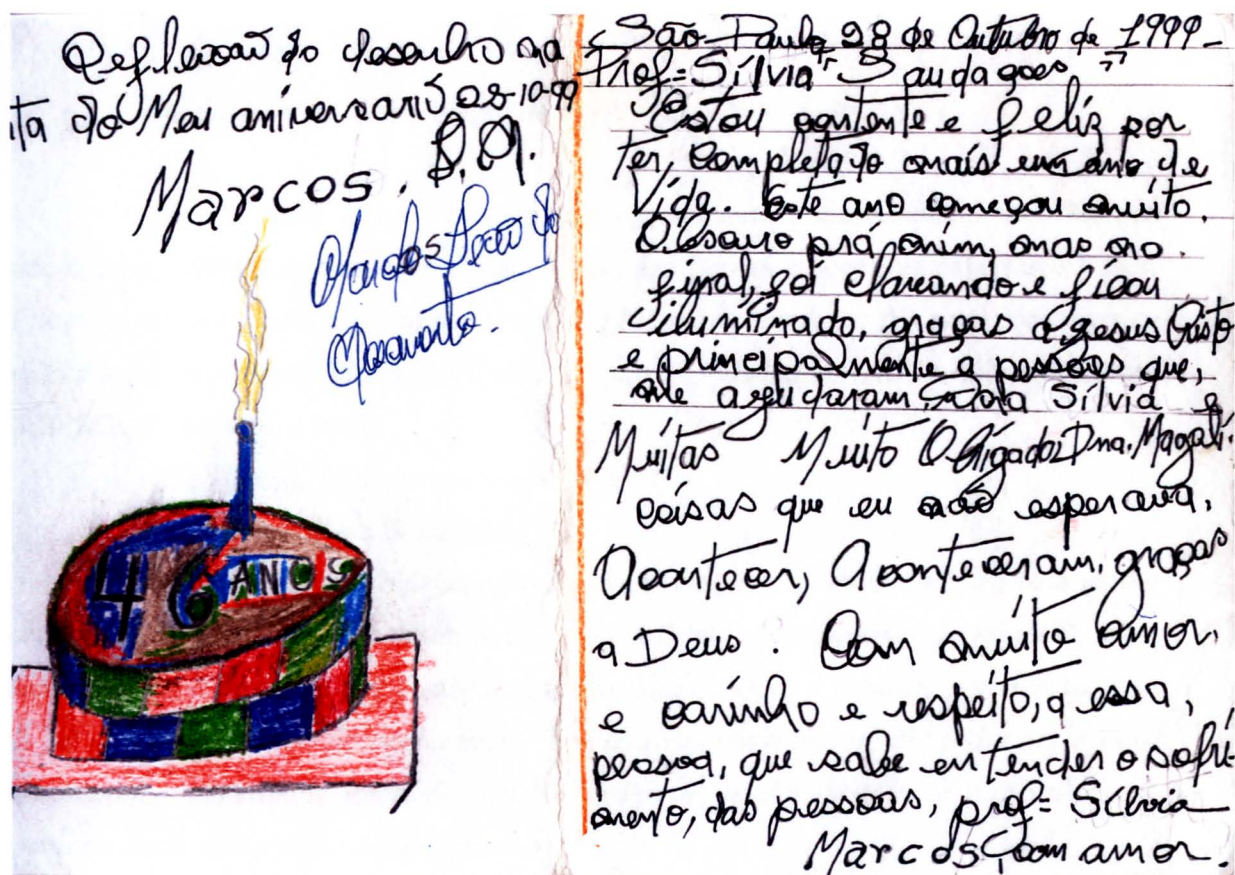 Reflexaõ do desenho na
ta do Meu aniversariõ 28-10-99
Marcos. S. N.
Marcos Leão do
Nascimento.
46 ANOS
São Paulo, 28 de Outubro de 1999-
Prof= Sílvia Saudaçoes
Estou contente e feliz por
ter, completado mais um ano de
Vida. Este ano começou muito.
Obscuro prá mim, mas no
final, foi clareando e ficou
iluminado, graças a Jesus Cristo
e principalmente a pessoas que,
me ajudaram, Sílvia e
Muitas Muito Obrigado, Dna. Magali.
coisas que eu não esperava,
Acontecer, Aconteceram, graças
a Deus. Com muito amor,
e carinho e respeito, a essa,
pessoa, que sabe entender o sofri-
mento, das pessoas, prof= Silvia
Marcos, com amor.